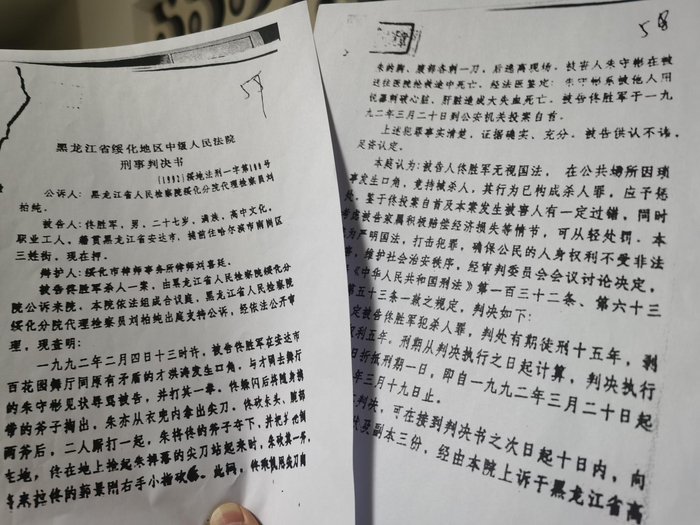 58
黑龙江省绥化地区中级人民法院
刑事判决书
(1992)绥地法刑一字第100号
公诉人：黑龙江省人民检察院绥化分院代理检察员刘
柏纯。
被告人：佟胜军，男，二十七岁，满族，高中文化，
职业工人，籍贯黑龙江省安达市，捕前住哈尔滨市南岗区
三姓街。现在押。
辩护人：绥化市律师事务所律师刘喜廷。
被告佟胜军杀人一案，由黑龙江省人民检察院绥化分
院公诉来院。本院依法组成合议庭，黑龙江省人民检察院
绥化分院代理检察员刘柏纯出庭支持公诉，经依法公开审
理，现查明：
一九九二年二月四日十三时许，被告佟胜军在安达市
百花园舞厅同原有矛盾的才洪涛发生口角，与才同去舞厅
的朱守彬见状辱骂被告，并打其一拳。佟躲闪后将随身携
带的斧子掏出，朱亦从衣兜内拿出尖刀。佟砍朱头、腹部
两斧后，二人厮打一起，朱将佟的斧子夺下，并把佟
在地，佟在地上拾起朱掉落的尖刀站起来时，朱砍其一斧，
58
朱的胸、腹部各刺一刀，后逃离现场。被害人朱守彬在被
送往医院抢救途中死亡。经法医鉴定：朱守彬系被他人用
锐器刺破心脏、肝脏造成大失血死亡。被告佟胜军于一九
九二年三月二十日到公安机关投案自首。
上述犯罪事实清楚，证据确实、充分。被告供认不讳，
足资认定。
本庭认为：被告人佟胜军无视国法，在公共场所因琐
事发生口角，竟持械杀人，其行为已构成杀人罪，应予惩
处。鉴于佟投案自首及本案发生被害人有一定过错，同时
被告家属积极赔偿经济损失等情节，可从轻处罚。本
为严明国法，打击犯罪，确保公民的人身权利不受非法
，维护社会治安秩序，经审判委员会会议讨论决定，
《中华人民共和国刑法》第一百三十二条、第六十三
第五十三条一款之规定，判决如下：
被告佟胜军犯杀人罪，判处有期徒刑十五年，剥
权利五年。刑期从判决执行之日起计算，判决执行
日折抵刑期一日，即自一九九二年三月二十日起
年三月十九日止。
判决，可在接到判决书之次日起十日内，向
状及副本三份，经由本院上诉于黑龙江省高